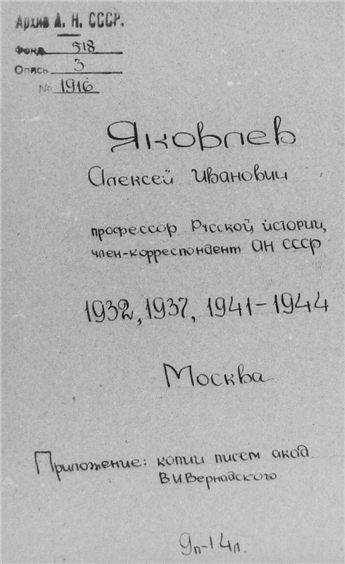 Архив А. Н. СССР.
Фонд 518
Опись 3
№ 1916
Яковлев
Алексей Иванович
профессор Русской истории,
член-корреспондент АН СССР
1932, 1937, 1941-1944
Москва
Приложение: копии писем акад.
В.И. Вернадского
9п-14л.